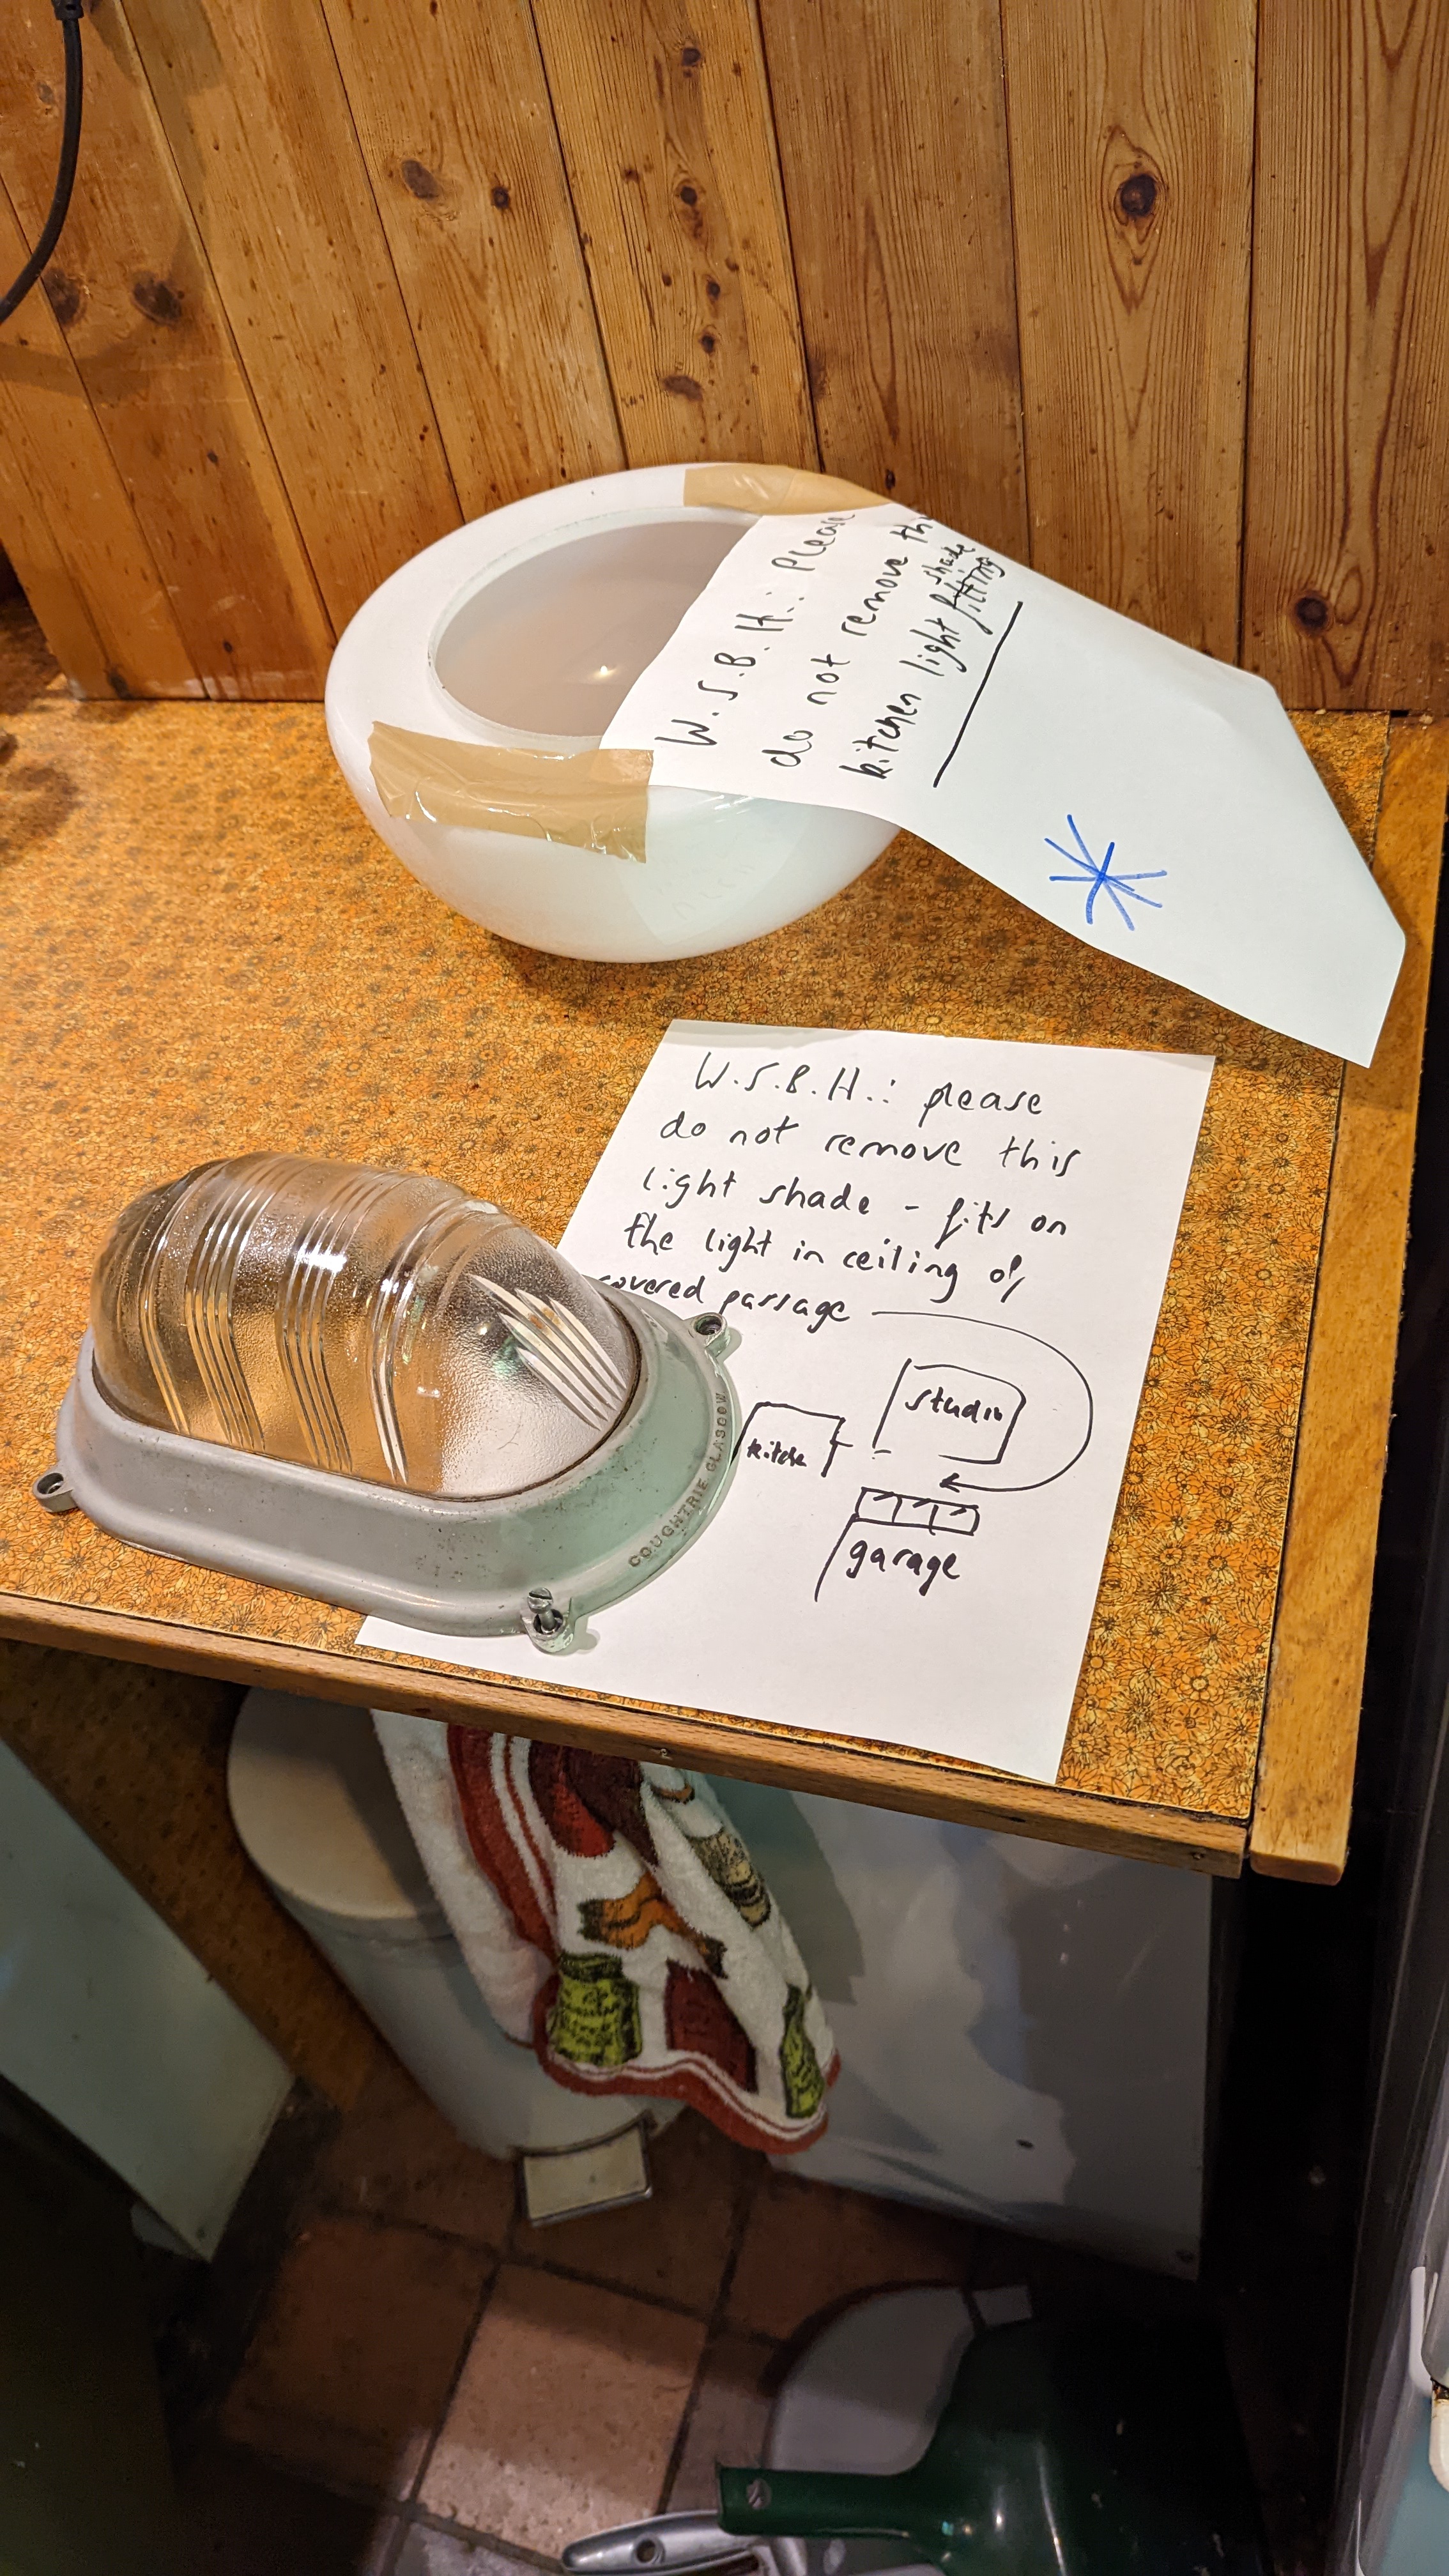 W.S.B.H.: please
do not remove this
kitchen light fitting
shade
W.S.B.H.: please
do not remove this
light shade - fits on
the light in ceiling of
covered passage
studio
kitchen
garage
COUGHTRIE GLASGOW